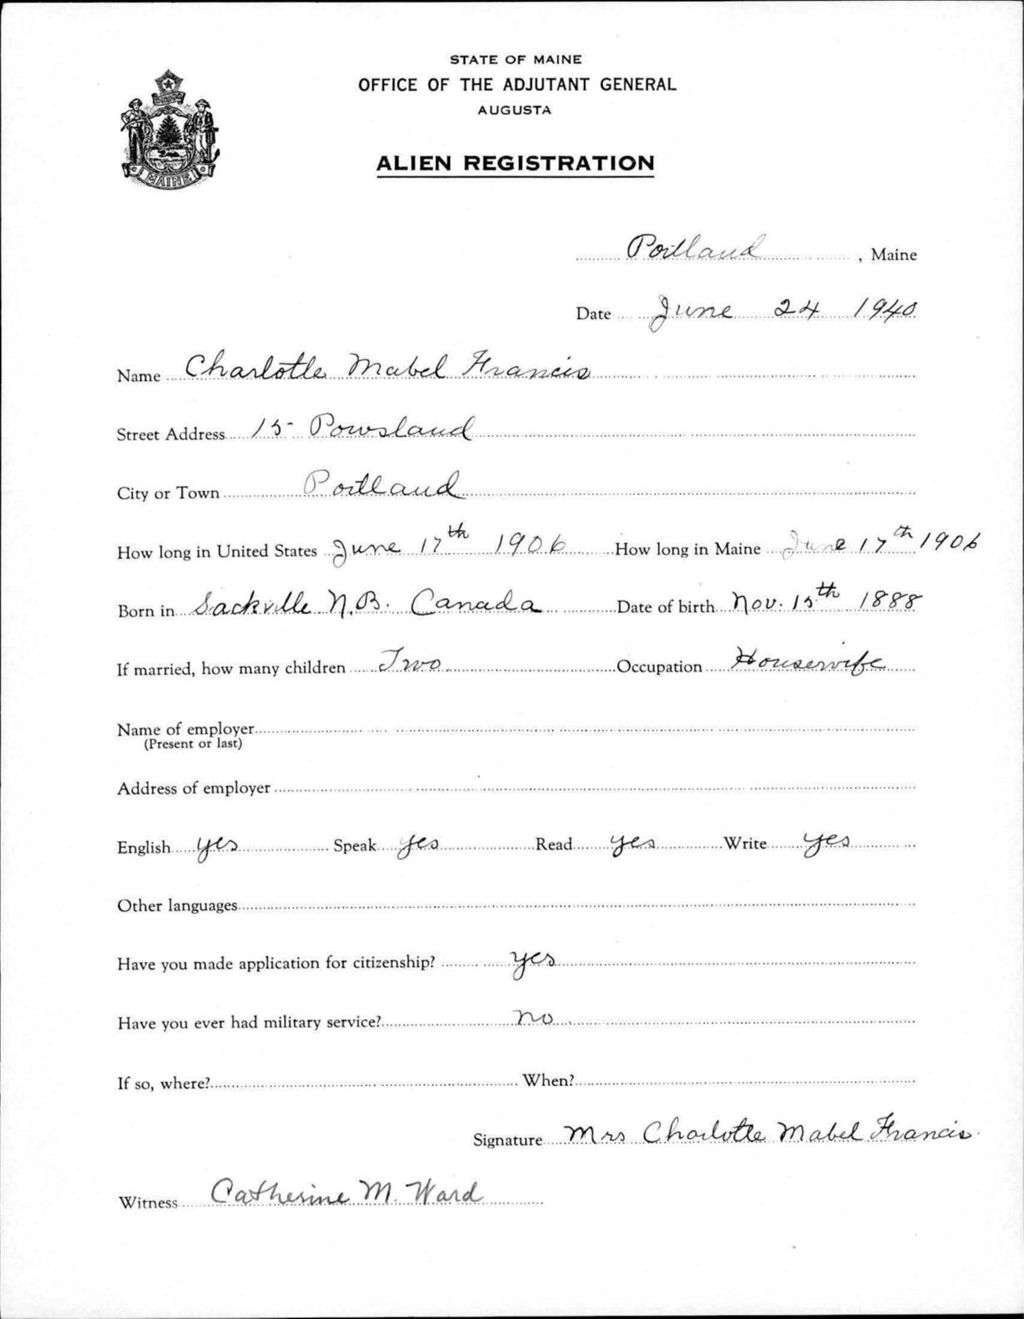 STATE OF MAINE
OFFICE OF THE ADJUTANT GENERAL
AUGUSTA
ALIEN REGISTRATION
MAINE
Portland, Maine
Date June 24 1940
Name Charlotte Mabel Francis
Street Address 15 Powsland
City or Town Portland
How long in United States June 17th 1906 How long in Maine June 17th 1906
Born in Sackville N.B. Canada Date of birth Nov. 15th 1888
If married, how many children Two Occupation Housewife
Name of employer
(Present or last)
Address of employer
English yes Speak yes Read yes Write yes
Other languages
Have you made application for citizenship? yes
Have you ever had military service? no
If so, where? When?
Signature Mrs Charlotte Mabel Francis
Witness Catherine M. Ward